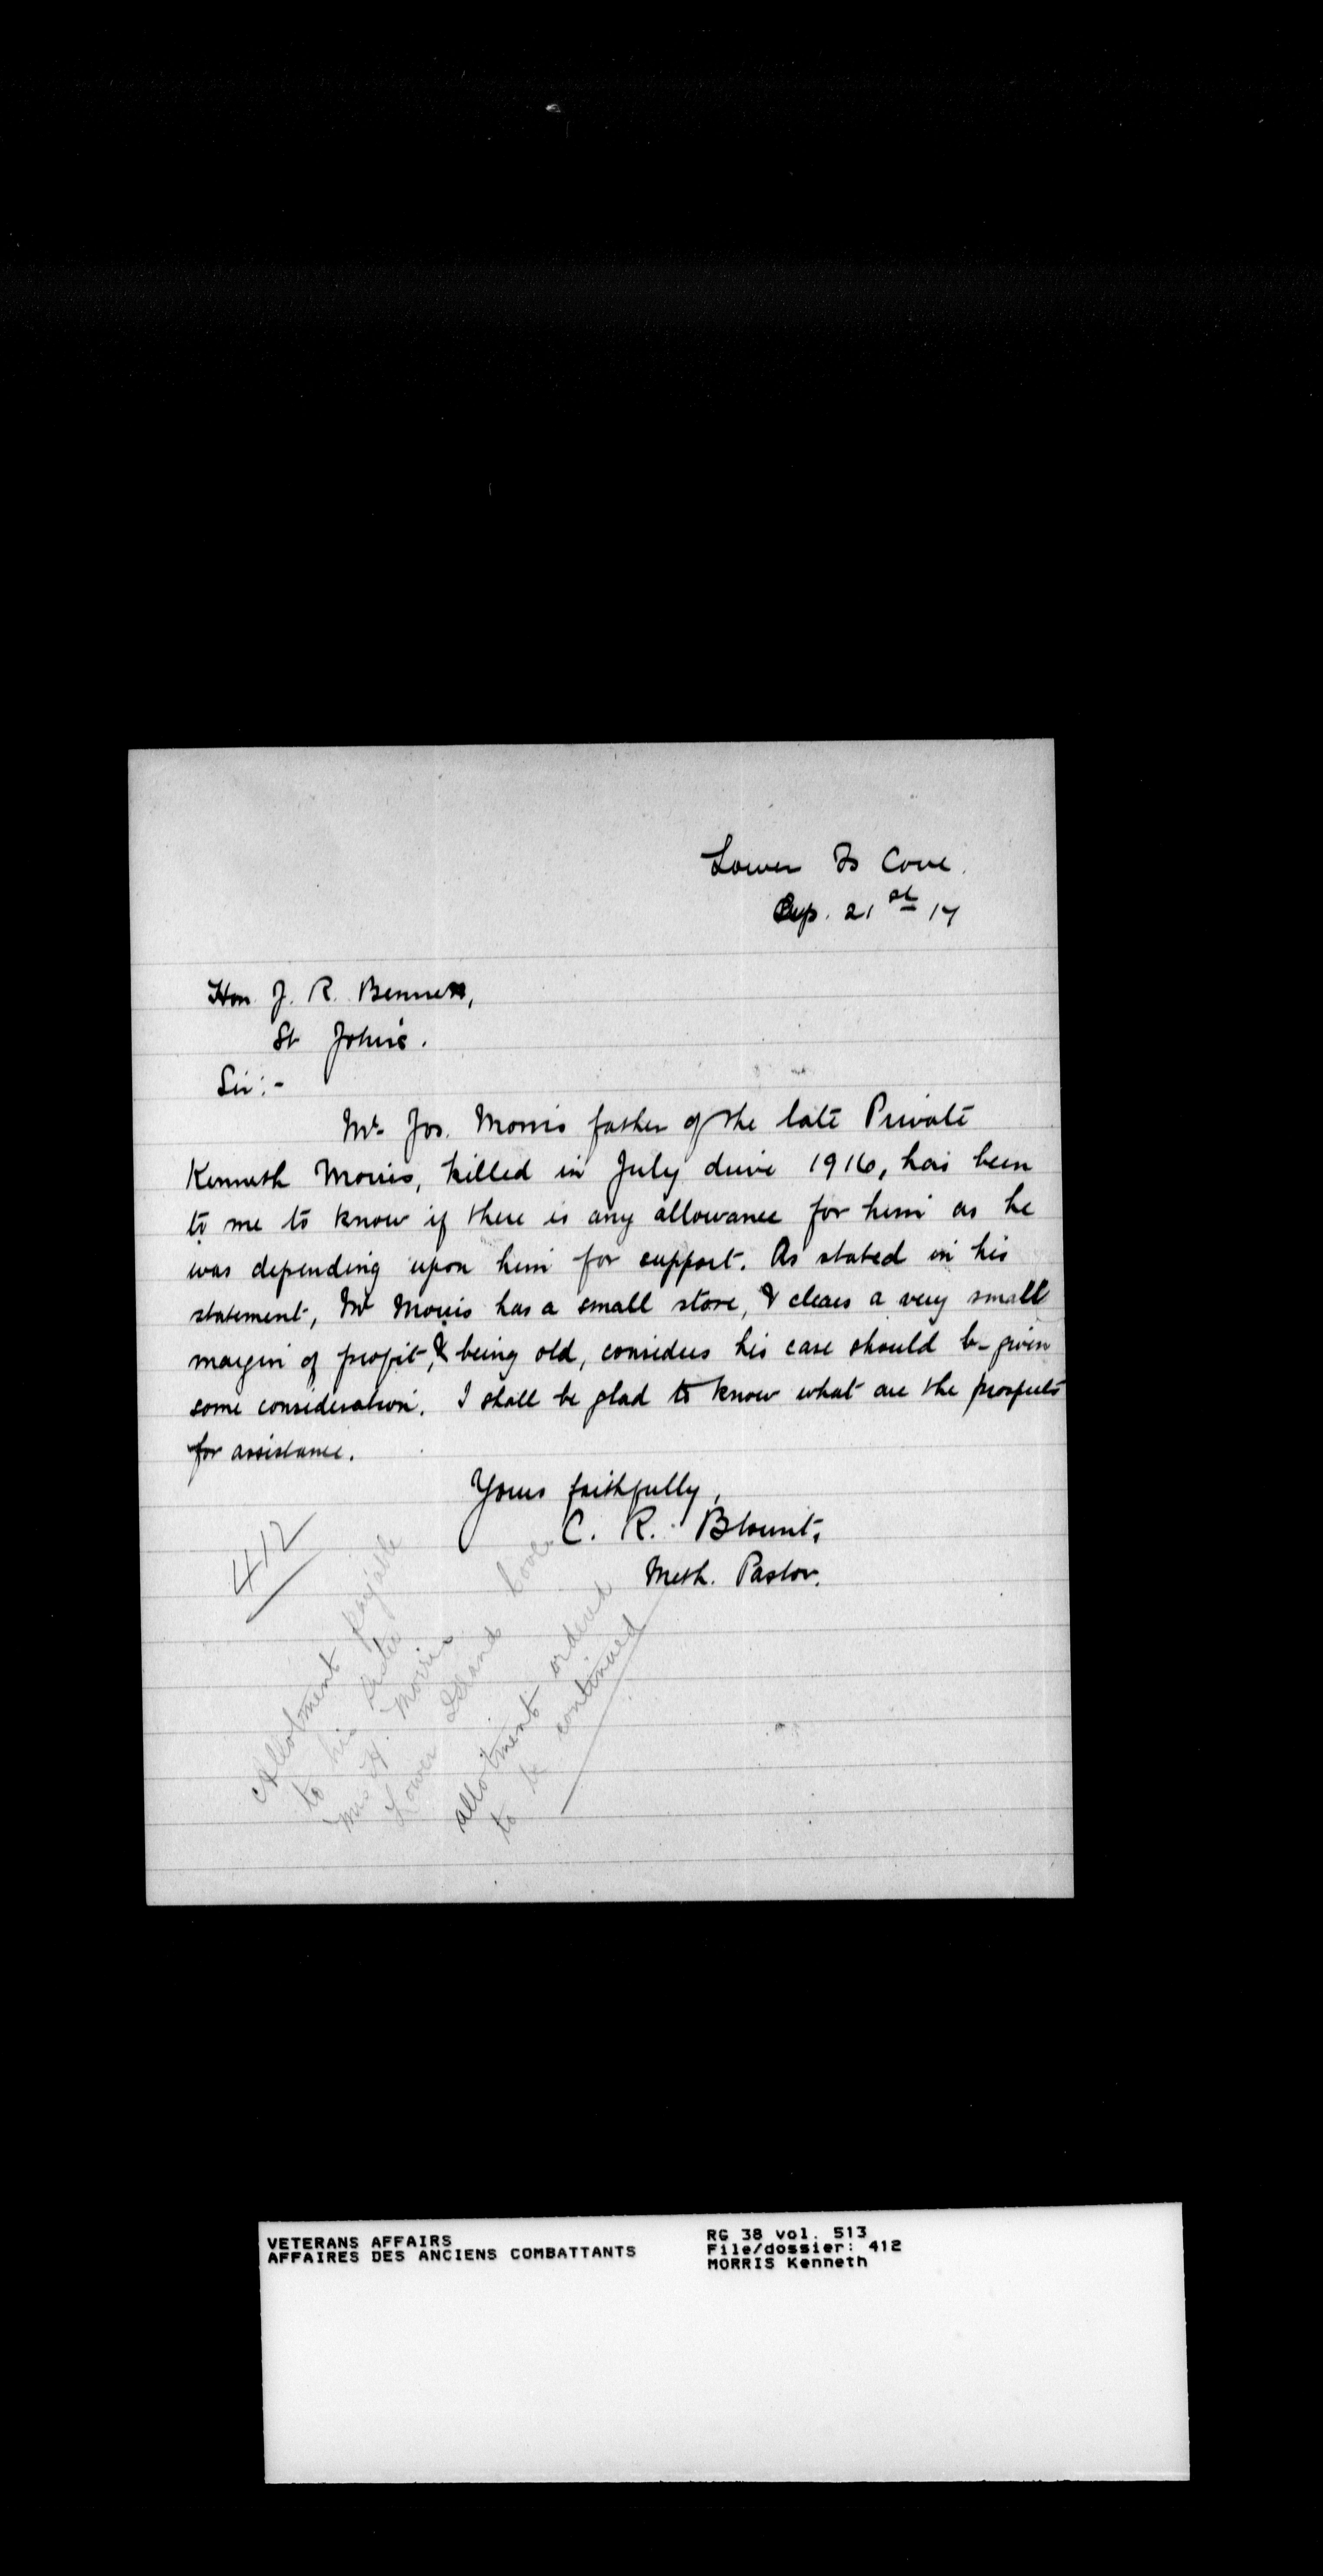 Lower Is Cove.
Sep. 21st 17
Hon. J. R. Bennett,
St John's.
Sir:-
Mr. Jos. Morris father of the late Private
Kenneth Morris, killed in July drive 1916, has been
to me to know if there is any allowance for him as he
was depending upon him for support. As stated in his
statement, Mr Morris has a small store, & clears a very small
margin of profit, & being old, considers his case should be given
some consideration. I shall be glad to know what are the prospects
for assistance.
Yours faithfully,
C. R. Blount,
Meth. Pastor.
412
Allotment payable
to his sister
Miss H. Morris
Lower Island Cove
allotment ordered
to be continued
VETERANS AFFAIRS
AFFAIRES DES ANCIENS COMBATTANTS
RG 38 vol. 513
File/dossier: 412
MORRIS Kenneth